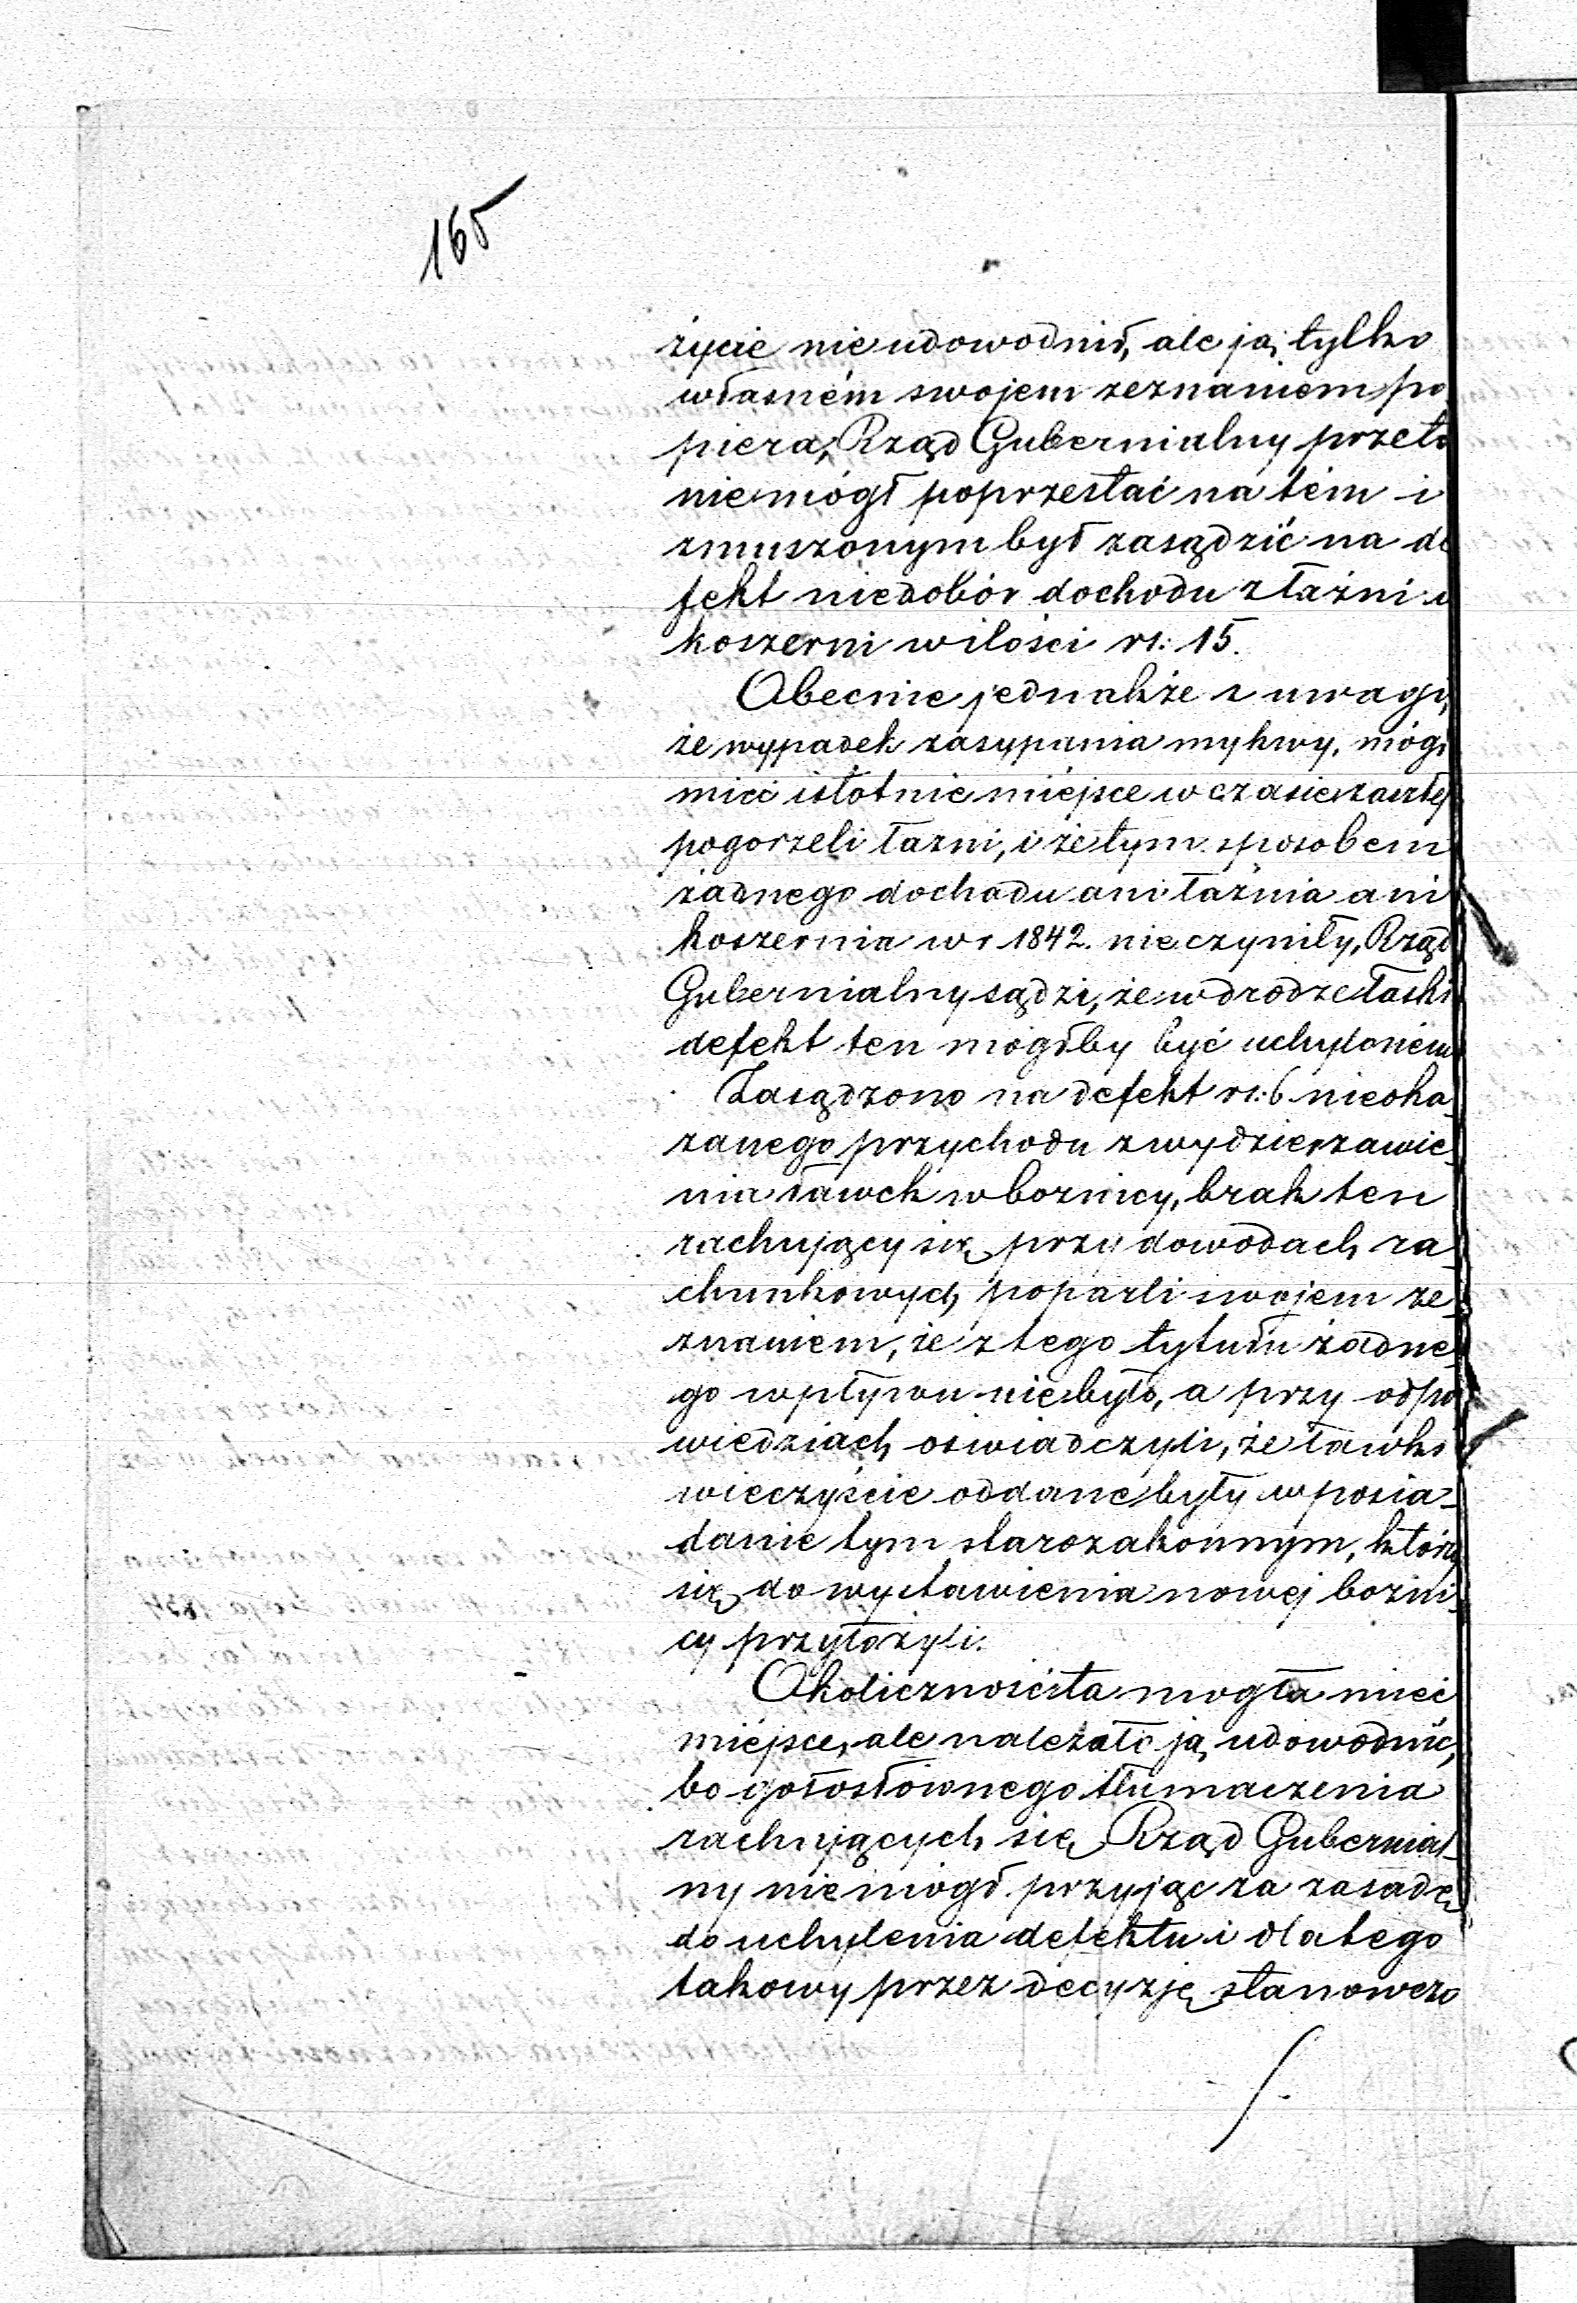 165
życie nie udowodnił, ale ją tylko
własném swojem zeznaniem po
piera, Rząd Gubernialny przeto
nie mógł poprzestać na tém i
zmuszonym był zasądzić na de
fekt niedobór dochodu z łaźni i
koszerni w ilości rs: 15.
Obecnie jednakże z uwagi,
że wypadek zasypania mykwy, mógł
mieć istotnie miéjsce w czasie zaszłej
pogorzeli łazni, i że tym sposobem
żadnego dochodu ani łaźnia ani
koszernia w r 1842. nie czyniły, Rząd
Gubernialny sądzi, że w drodze łaski
defekt ten mógłby być uchyloném
Zasądzono na defekt rs: 6 nieoka_
zanego przychodu z wydzierzawie_
nia ławek w boznicy, brak ten
rachujący się przy dowodach ra_
chunkowych poparli swojem ze_
znaniem, że z tego tytułu żadne_
go wpływu nie było, a przy odpo
wiedziach oświadczyli, że ławki
wieczyście oddane były w posia_
danie tym starozakonnym, którzy
się do wystawienia nowej bozni_
cy przyłożyli.
Okoliczność ta mogła mieć
miéjsce, ale należało ją udowodnić,
bo gołosłównego tłumaczenia
rachujących się Rząd Gubernial_
ny nie mógł przyjąć za zasadę
do uchylenia defektu i dlatego
takowy przez decyzję stanowczo